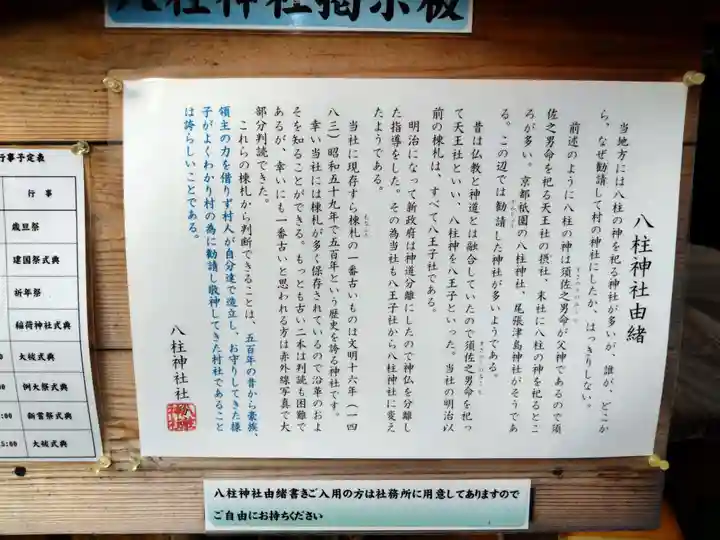 八柱神社掲示板
八柱神社由緒
当地方には八柱の神を祀る神社が多いが、誰が、どこか
ら、なぜ勧請して村の神社にしたか、はっきりしない。
前述のように八柱の神は須佐之男命が父神であるので須
佐之男命を祀る天王社の摂社、末社に八柱の神を祀るとこ
ろが多い。京都祇園の八柱神社、尾張津島神社がそうであ
る。この辺では勧請した神社が多いようである。
昔は仏教と神道とは融合していたので須佐之男命を祀っ
て天王社といい、八柱神を八王子といった。当社の明治以
前の棟札は、すべて八王子社である。
明治になって新政府は神道分離にしたので神仏を分離し
た指導をした。その為当社も八王子社から八柱神社に変え
たようである。
当社に現存すら棟札の一番古いものは文明十六年(一四
八三)昭和五十九年で五百年という歴史を誇る神社です。
幸い当社には棟札が多く保存されているので沿革のおよ
そを知ることができる。もっとも古い二本は判読も困難で
あるが、幸いにも一番古いと思われる方は赤外線写真で大
部分判読できた。
これらの棟札から判断できることは、五百年の昔から豪族、
領主の力を借りず村人が自分達で造立し、お守りしてきた様
子がよくわかり村の為に勧請し敬神してきた村社であること
は誇らしいことである。
八柱神社社
行事予定表
行事
歳旦祭
建国祭式典
祈年祭
稲荷神社式典
大祓式典
例大祭式典
新嘗祭式典
大祓式典
八柱神社由緒書きご入用の方は社務所に用意してありますので
ご自由にお持ちください